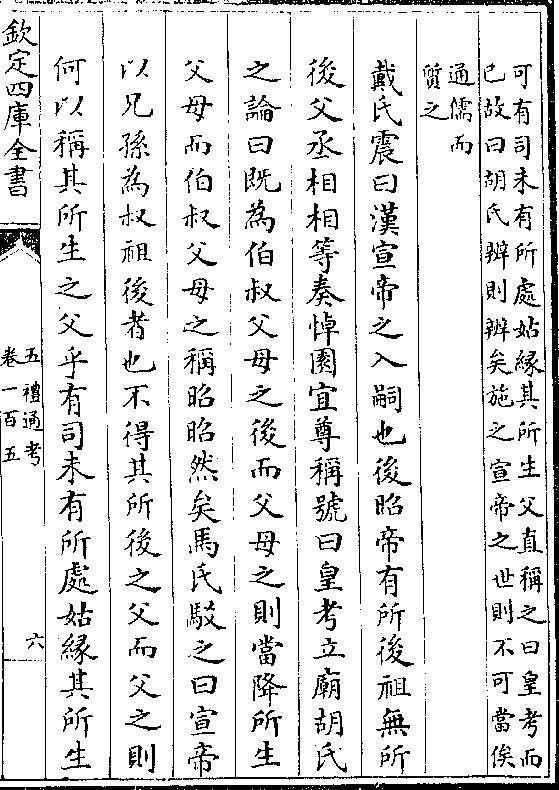 可有司未有所處姑緣其所生父直稱之曰皇考而
已故曰胡氏辨則辨矣施之宣帝之世則不可當俟
通儒而
質之
戴氏震曰漢宣帝之入嗣也後昭帝有所後祖無所
後父丞相相等奏悼園宜尊稱號曰皇考立廟胡氏
之論曰既為伯叔父母之後而父母之則當降所生
父母而伯叔父母之稱昭昭然矣馬氏駁之曰宣帝
以兄孫為叔祖後者也不得其所後之父而父之則
何以稱其所生之父乎有司未有所處姑緣其所生
欽定四庫全書
五禮通考
卷一百五
六